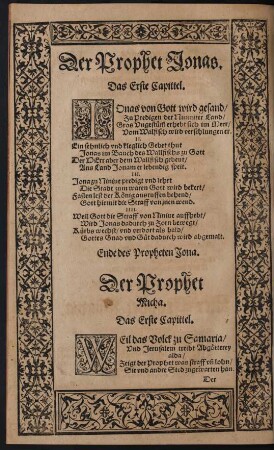 Der Prophet Jonas.
Das Erste Capittel.
JOnas von Gott wird gesand/
Zu Predigen der Niniuiter Land/
Gros Vngestüm erhebt sich im Meer/
Vom Walfisch wird verschlungen er.
II.
Ein sehnlich vnd kleglich Gebet thut
Jonas im Bauch des Walfischs zu Gott
Der HErr aber dem Walfisch gebeut/
Ans Land Jonam er lebendig speit.
III.
Jonas Niniue predigt vnd lehrt
Die Stadt zum waren Gott wird bekert/
Fasten lest der König ausruffen behend/
Gott hiemit die Straff von jnen wend.
IIII.
Weil Gott die Straff von Niniue auffhebt/
Wird Jonas dadurch zu Zorn bewegt/
Kürbs wechst vnd verdort als bald/
Gottes Gnad vnd Güt dadurch wird abgemalt.
Ende des Propheten Jona.
Der Prophet
Micha.
Das Erste Capittel.
WEil das Volck zu Samaria/
Vnd Jerusalem treibt Abgötterey
alda/
Zeigt der Prophet man straff
Sie vnd andre Sted zugewarten han
Der